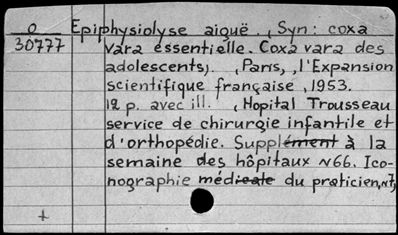 0 Epiphysiolyse aiguë. , Syn: coxa
30777 vara essentielle. Coxa vara des
adolescents). , Paris, , l'Expansion
scientifique française , 1953.
12 p. avec ill. , Hopital Trousseau
service de chirurgie infantile et
d'orthopédie. Supplément à la
semaine des hôpitaux N66. Ico-
nographie médicale du praticien, N7,
+